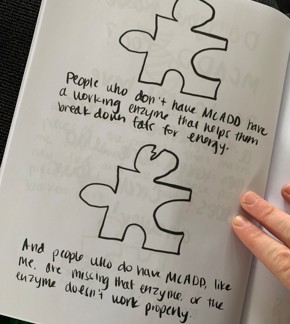 People who don't have MCADD have
a working enzyme that helps them
break down fats for energy.
And people who do have MCADD, like
me, are missing that enzyme, or the
enzyme doesn't work properly.